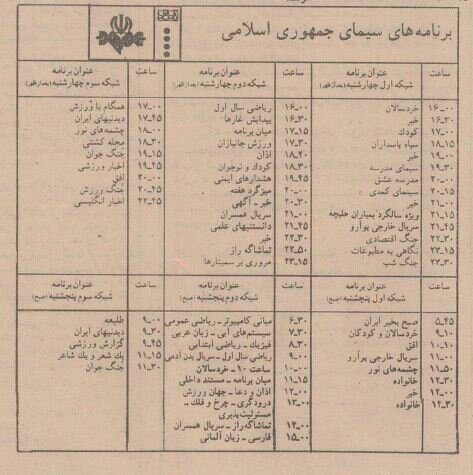 برنامه‌های سیمای جمهوری اسلامی
ساعت عنوان برنامه
شبکه اول چهارشنبه (بعدازظهر)
۱۶-۰۰ خردسالان
۱۶-۳۰ خبر
۱۷-۰۰ کودک
۱۸-۱۵ سپاه پاسداران
۱۹-۰۰ خبر
۱۹-۳۰ سیمای مدرسه
۲۰-۰۰ مدرسه عشق
۲۰-۱۵ سینمای کمدی
۲۱-۰۰ خبر
۲۱-۱۵ ویژه سالگرد بمباران حلبچه
۲۱-۴۵ سریال خارجی پوآرو
۲۲-۳۰ جنگ اقتصادی
۲۲-۱۵ نگاهی به مطبوعات
۲۳-۳۰ جنگ شب
ساعت عنوان برنامه
شبکه دوم چهارشنبه (بعدازظهر)
۱۶-۰۰ ریاضی سال اول
۱۶-۳۰ پیدایش غارها
۱۷-۱۵ میان برنامه
۱۷-۳۰ ورزش جانبازان
۱۸-۲۰ اذان
۱۸-۳۰ کودک و نوجوان
۱۹-۴۵ هشدارهای ایمنی
۲۰-۰۰ میزگرد هفته
۲۰-۳۰ خبر - آگهی
۲۱-۰۰ سریال همسران
۲۱-۴۵ دانستنیهای علمی
۲۲-۳۰ خبر
۲۲-۵۰ تماشاگه راز
۲۳-۱۵ مروری بر سمینارها
ساعت عنوان برنامه
شبکه سوم چهارشنبه (بعدازظهر)
۱۷-۰۰ همگام با ورزش
۱۷-۴۵ دیدنیهای ایران
۱۸-۰۰ چشمه‌های نور
۱۸-۳۰ مجله کشتی
۱۹-۱۵ جنگ جوان
۱۹-۴۵ اخبار ورزشی
۲۰-۰۰ افق
۲۰-۴۵ جنگ ورزش
۲۲-۴۵ اخبار انگلیسی
ساعت عنوان برنامه
شبکه اول پنجشنبه (صبح)
۵-۴۵ صبح بخیر ایران
۹-۱۰ خردسالان و کودکان
۱۰-۱۰ افق
۱۱-۰۰ سریال خارجی پوآرو
۱۱-۵۰ چشمه‌های نور
۱۲-۳۰ خانواده
۱۴-۰۰ خبر
۱۴-۳۰ خانواده
ساعت عنوان برنامه
شبکه دوم پنجشنبه (صبح)
۶-۳۰ مبانی کامپیوتر - ریاضی عمومی
۷-۳۰ سیستم‌های آبی - زبان عربی
۸-۳۰ فیزیک - ریاضی ابتدایی
۹-۰۰ ریاضی سال اول - سریال بدن آدمی
۱۰-۰۰ ساعت ۱۰ - خردسالان
۱۱-۱۵ میان برنامه - مستند داخلی
۱۲-۰۰ اذان و دعا - جهان ورزش
۱۳-۰۰ درودگری - چرخ و فلک -
مسئولیت‌پذیری
۱۴-۰۰ تماشاگه راز - سریال همسران
۱۵-۰۰ فارسی - زبان آلمانی
ساعت عنوان برنامه
شبکه سوم پنجشنبه (صبح)
۹-۰۰ طلیعه
۹-۳۰ دیدنیهای ایران
۹-۴۵ گزارش ورزشی
۱۱-۱۵ یک شعر و یک شاعر
۱۱-۳۰ جنگ جوان